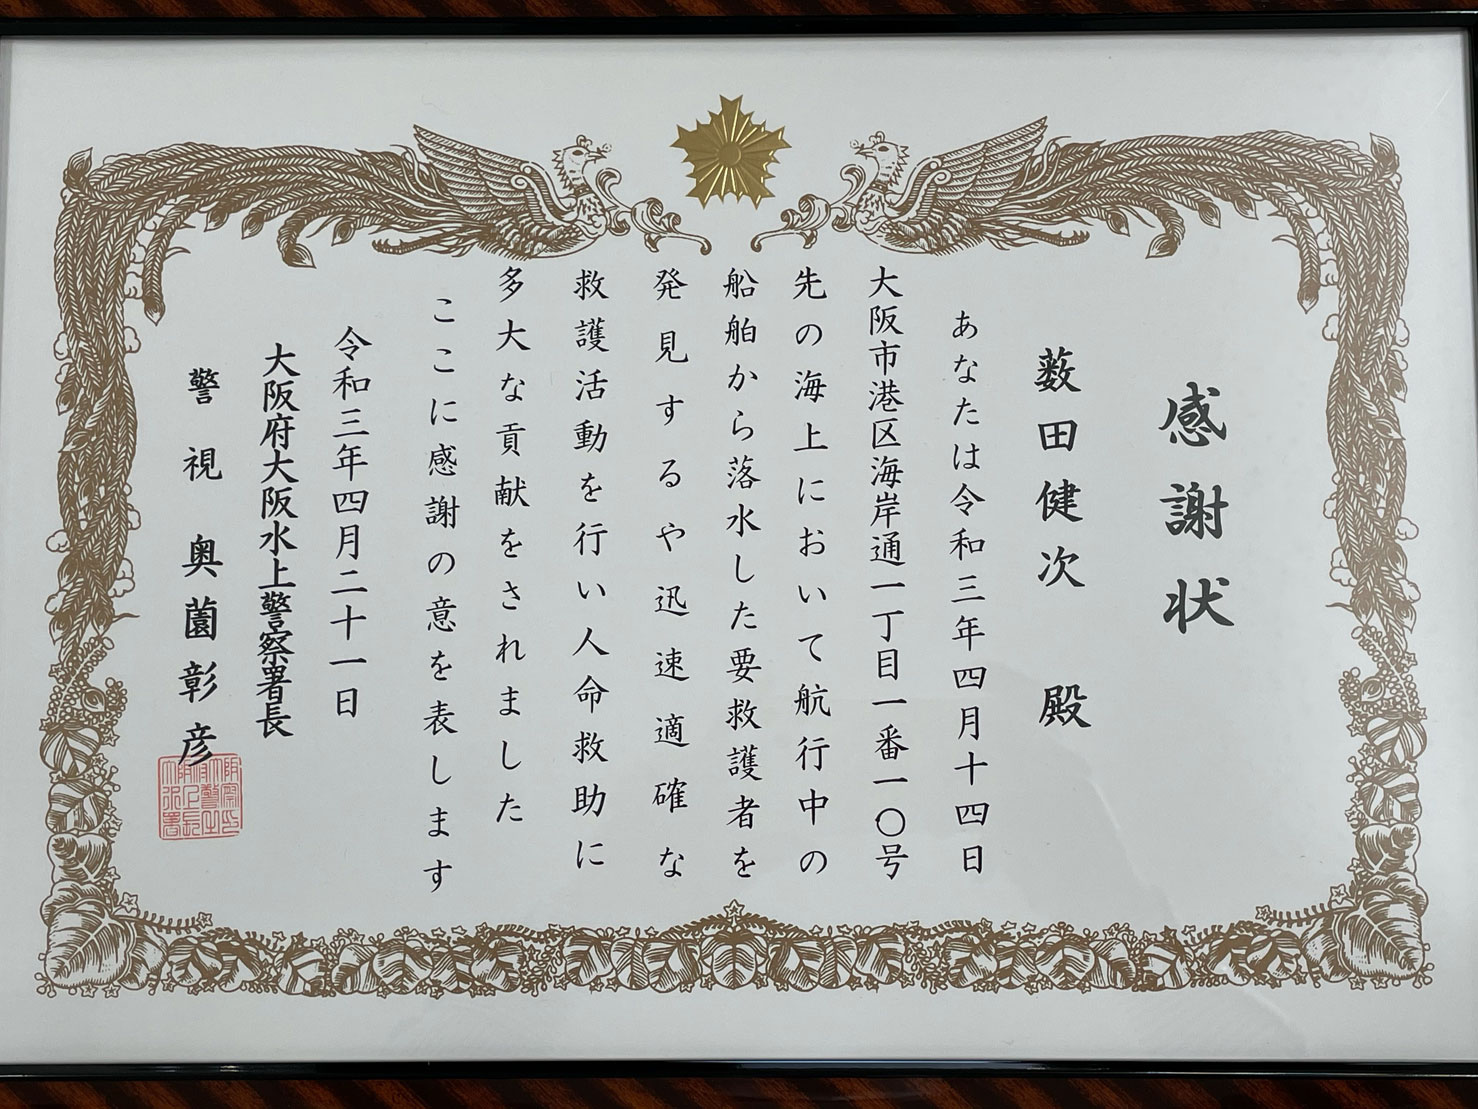 感謝状
薮田健次 殿
あなたは令和三年四月十四日
大阪市港区海岸通一丁目一番一〇号
先の海上において航行中の
船舶から落水した要救護者を
発見するや迅速適確な
救護活動を行い人命救助に
多大な貢献をされました
ここに感謝の意を表します
令和三年四月二十一日
大阪府大阪水上警察署長
警視 奥薗彰彦